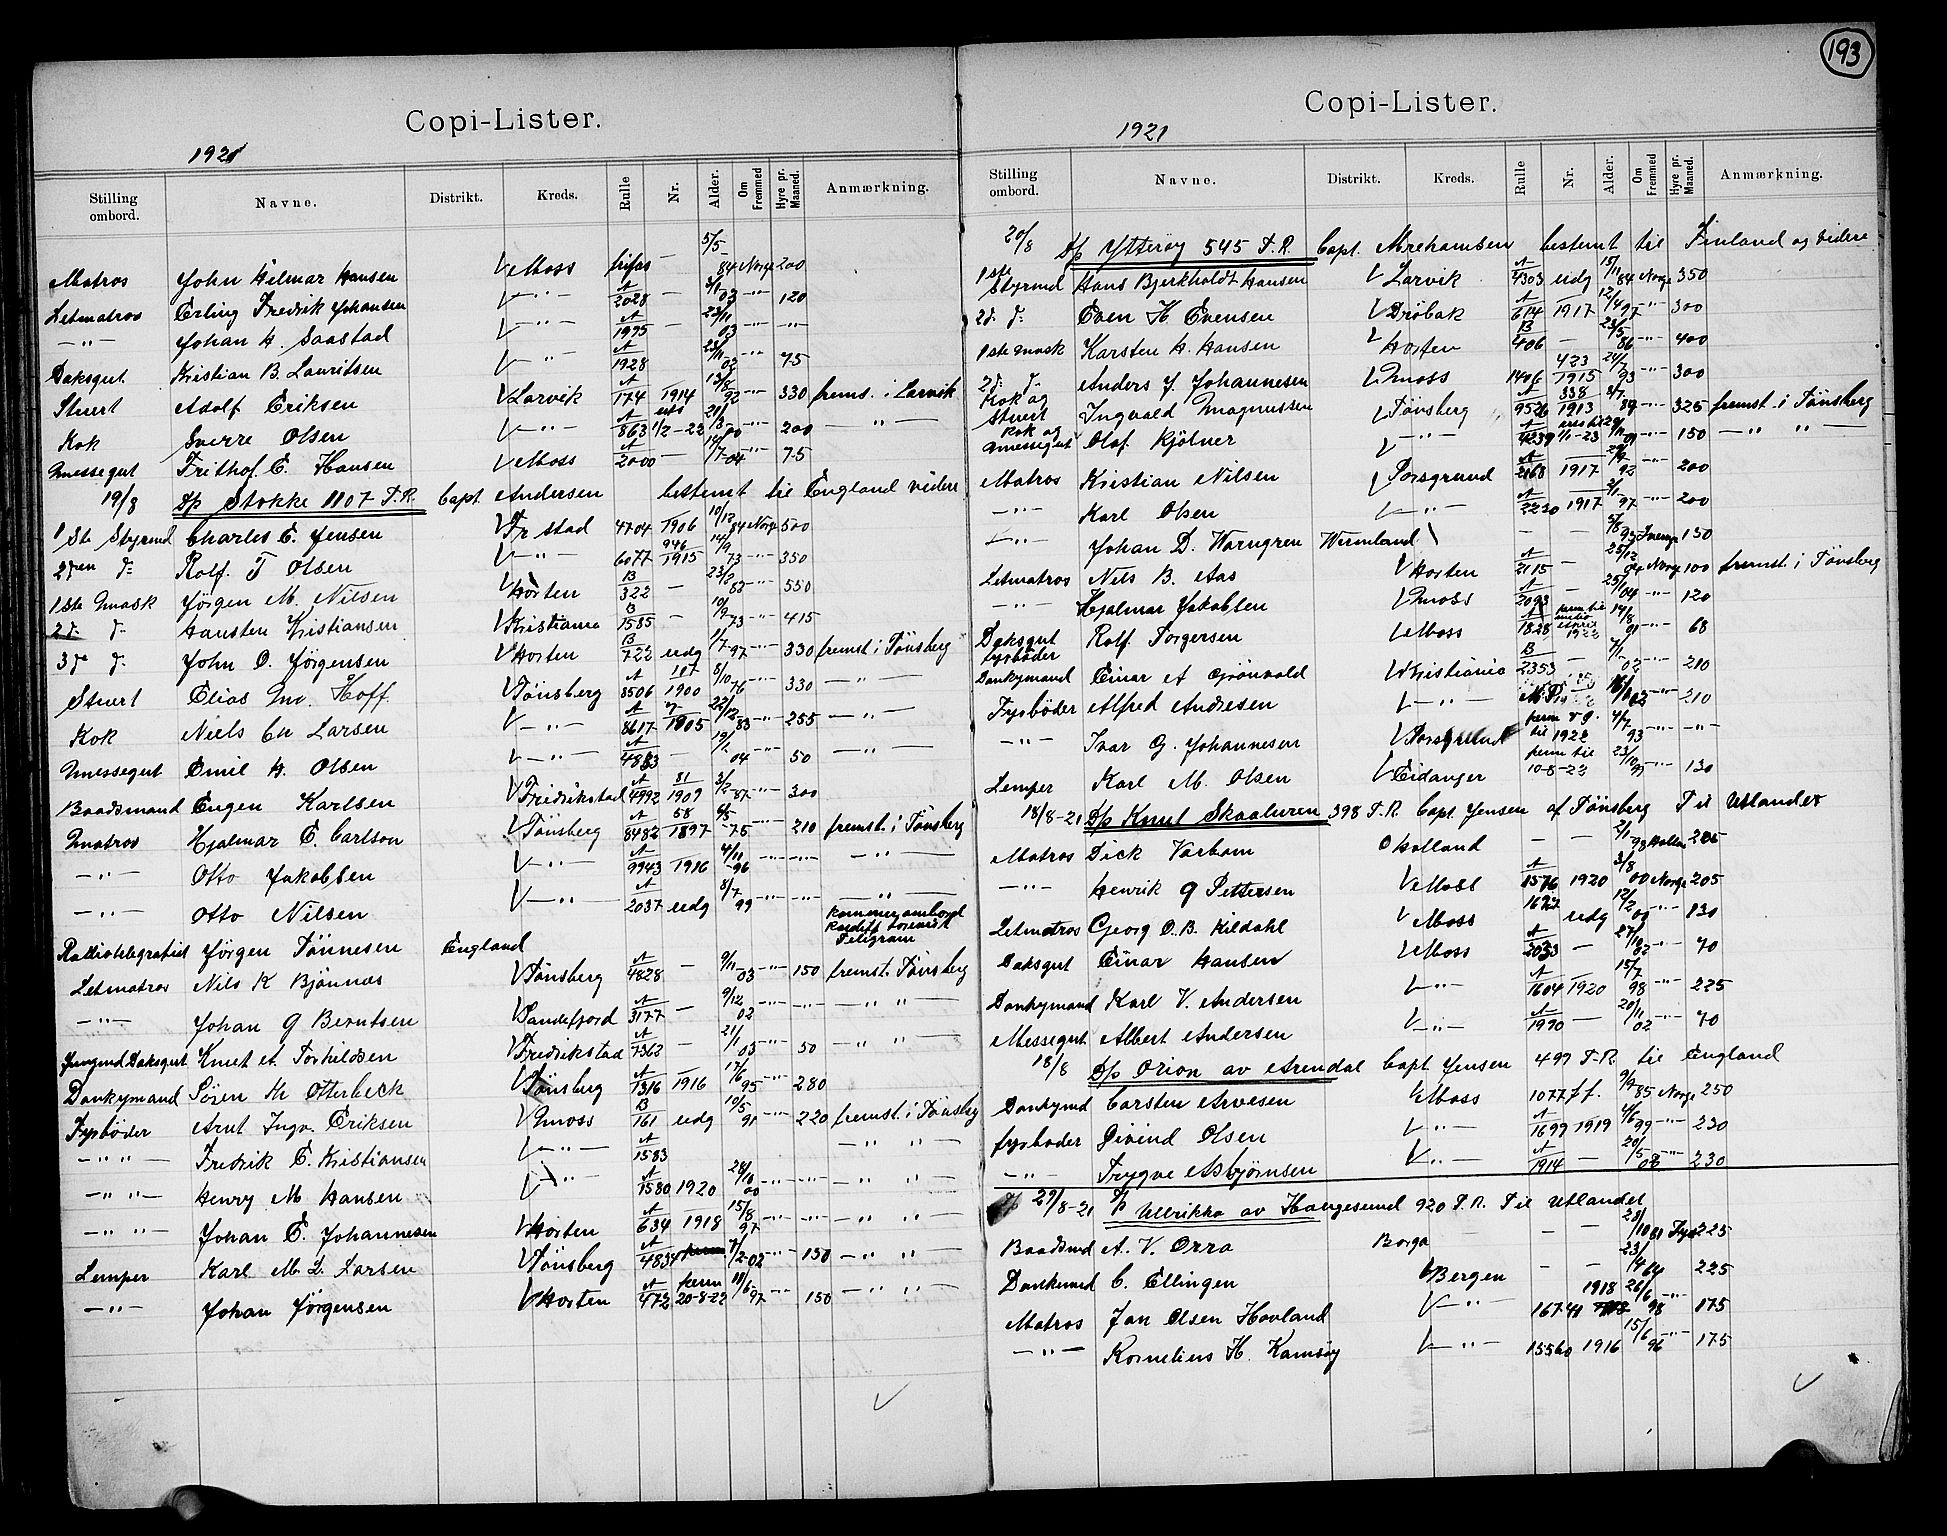 193
Copi-Lister.
1921
Stilling ombord. Navne. Distrikt. Kreds. Rulle Nr. Alder. Om Fremmed Hyre pr. Maaned. Anmærkning.
Matros John Hilmar Hansen V Moss 5/5 84 Norge 200
Letmatros Erling Fredrik Johansen V —"— A 2028 — 3/1 03 —"— 120
—"— Johan H. Saastad V —"— A 1995 — 23/11 03 —"— —"—
Daksgut Kristian B. Lauritsen V —"— A 1928 75
Stuert Adolf Eriksen V Larvik A 174 1914 13/8 92 —"— 330 frems. i Larvik
Kok Sverre Olsen V —"— A 863 1/2-22 —"— 200 —"—
Messegut Frithof. E. Hansen V Moss A 2000 — 14/7 04 —"— 75
19/8 D/p Stokke 1107 T.R. Capt. Andersen bestemt til England videre
1ste Styrmd Charles E. Jensen V Fr.stad 4704 1906 10/12 84 Norge 500
2den d: Rolf. T Olsen V —"— 6077 946 1915 14/9 73 —"— 350
1ste Mask Jørgen M. Nilsen V Horten B 322 — —"— 550
2d. d: Hansten Kristiansen V Kristiania B 1585 — 10/9 73 —"— 415
3de d: John O. Jørgensen V Horten B 722 udg 1/7 97 —"— 330 fremst. i Tønsberg
Stuert Elias Mo. Hoff V Tønsberg A 8506 107 1900 8/10 76 —"— 330 —"—
Kok Niels Chr Larsen V —"— A 8617 1905 22/12 83 —"— 255 —"—
Messegut Emil H. Olsen V —"— A 4883 04 50 —"—
Baadsmand Eugen Karlsen V Fredrikstad A 4992 81 1909 3/2 87 —"— 300
Matros Hjalmar E. Carlson V Tønsberg A 8482 58 1897 75 —"— 210 fremst. i Tønsberg
—"— Otto Jakobsen V —"— A 9943 1916 4/11 96 —"— —"— —"—
—"— Otto Nilsen V —"— A 2037 udg 8/7 99 —"— —"— —"—
Radiotelegrafist Jørgen Tønnesen England kommer ombord Kardiff Telegram
Letmatros Nils K Bjønnes V Tønsberg A 4828 — 9/11 03 —"— 150 fremst. Tønsberg
—"— Johan G Berntsen V Sandefjord A 3177 — 9/12 02 —"— —"— —"—
Jungmd Daksgut Knut A. Torkildsen V Fredrikstad A 7362 — 21/1 03 —"— 50 —"—
Donkymand Søren Kr Otterbeck V Tønsberg A 1316 1916 17/6 95 —"— 280
Fyrbøder Arnt Ingv. Eriksen V Moss B 161 udg 10/5 91 —"— 220 fremst. i Tønsberg
—"— Fredrik E. Kristiansen V —"— A 1583 —"—
—"— Henry M Hansen V —"— A 1580 1920 28/10 00 —"— —"— —"—
—"— Johan E. Johannesen V Horten A 634 1918 15/8 97 —"— —"— —"—
Lemper Karl M. L. Larsen V Tønsberg A 4834 7/2-02 —"— 150 —"—
—"— Johan Jørgensen V Horten A 472 perm 20-8-22 97 —"— 150 —"—
Copi-Lister.
1921
Stilling ombord. Navne. Distrikt. Kreds. Rulle Nr. Alder. Om Fremmed Hyre pr. Maaned. Anmærkning.
20/8 D/p Ytterøy 545 T.R. Capt. Mrehamsen bestemt til Finland og videre
1ste Styrmd Hans Bjerkholdt Hansen V Larvik A 4303 udg 15/11 84 Norge 350
2d. d: Even H Evensen V Drøbak A 614 1917 12/4 97 —"— 300
1ste Mask Karsten H. Hansen V Horten B 406 — 23/5 86 —"— 400
2d. d: Anders J. Johannesen V Moss 1406 423 1915 24/7 93 —"— 300
Kok og Stuert Ingvald Magnussen V Tønsberg A 9526 338 1913 —"— 325 fremst. i Tønsberg
Kok og Messegut Olaf Kjølner V —"— A 4239 1/1-23 —"— 150 —"—
Matros Kristian Nilsen V Porsgrund A 2168 1917 92 —"— 200
—"— Karl Olsen V —"— A 2220 1917 2/11 97 —"— 200
—"— Johan D. Warngren Wermland — — 93 Sverge 150
Letmatros Nils B. Aas V Horten A 2115 — 25/12 04 Norg 100 fremst. i Tønsberg
—"— Hjalmar Jakobsen V Moss A 2093 25/1 04 —"— 120
Daksgut fyrbøder Rolf Torgersen V Moss 1828 perm til 1922 14/8 —"— 68
Donkymand Einar A Grønvold V Kristiania B 2353 — 02 —"— 210
Fyrbøder Alfred Andresen V —"— —"— 210
—"— Ivar G. Johannesen V Porsgrund til 1922 4/7 93 —"— —"—
Lemper Karl M. Olsen V Eidanger perm til 10-8-22 23/10 —"— 130
18/8-21 D/p Knut Skaaluren 398 T.R. Capt. Jensen af Tønsberg Til Utlandet
Matros Dick Varham Holland — — 2/1 98 205
—"— Henrik G Pettersen V Moss A 1576 1920 3/8 00 Norge 205
Letmatros Georg O. B. Kildahl V Moss udg 12/2 —"— 130
Daksgut Einar Hansen V Moss A 2033 — 27/10 02 —"— 70
Donkymand Karl V. Andersen V —"— A 1604 1920 15/7 98 —"— 225
Messegut Albert Andersen V —"— A 1990 — 20/11 02 —"— 70
18/8 D/p Orion av Arendal Capt Jensen 497 T.R. til England
Donkymd Carsten Arvesen V Moss 1077 ff. 9/9 85 Norge 250
fyrbøder Øivind Olsen V —"— A 1699 1919 4/6 99 —"— 230
—"— Trygve Asbjørnsen V —"— A 1914 — 20/5 —"— 230
29/8-21 S/p Ullrikka av Haugesund 920 T.R. Til Utlandet
Baadsmd A. V. Orra Borga — — 28/10 81 225
Donkemd C. Ellingen V Bergen — — 23/4 64 225
Matros Jan Olsen Hovland V —"— 16741 1918 26/6 98 —"— 175
—"— Kornelius H. Kamsøy V —"— 15560 1916 15/6 96 —"— 175